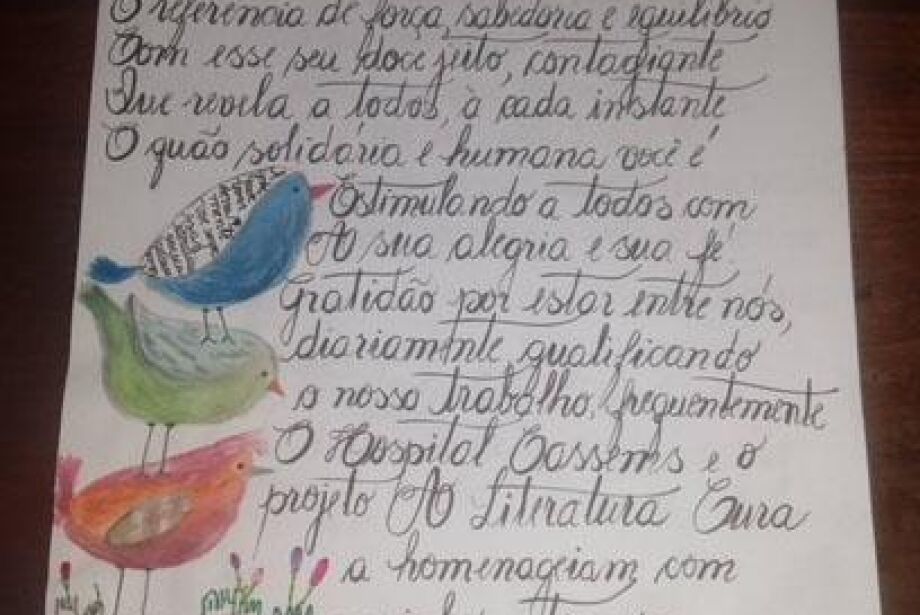 O referência de força, sabedoria e equilíbrio
Com esse seu doce jeito, contagiante
Que revela a todos, à cada instante
O quão solidária e humana você é
Estimulando a todos com
A sua alegria e sua fé.
Gratidão por estar entre nós,
diariamente qualificando
o nosso trabalho, frequentemente
O Hospital Cassems e o
projeto A Literatura Cura
a homenageiam com